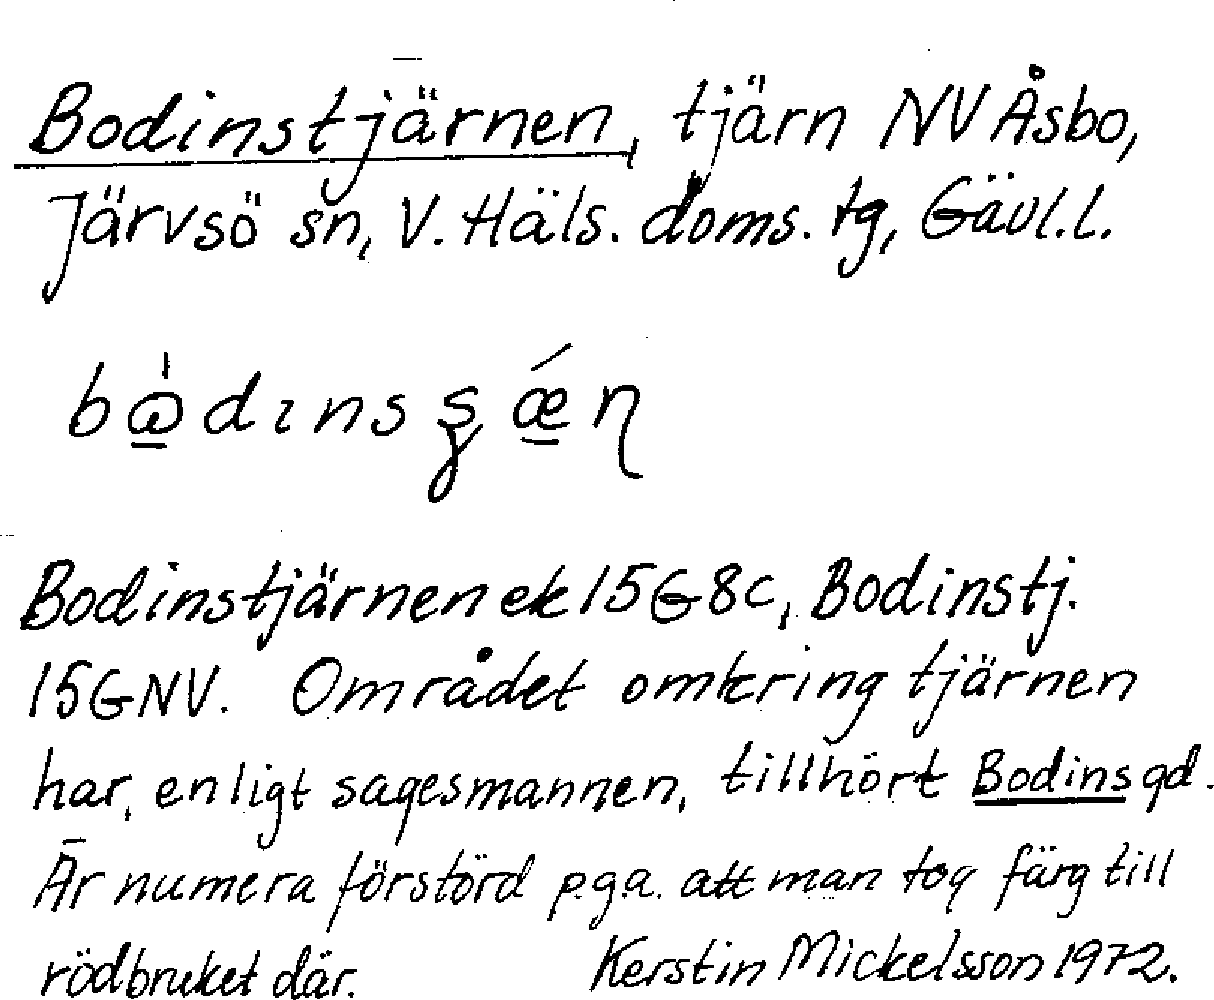 Bodinstjärnen, tjärn NV Åsbo,
Järvsö sn, V. Häls. doms. tg, Gävl.l.
Bodinstjärnen ek 15G8c, Bodinstj.
15GNV. Området omkring tjärnen
har, enligt sagesmannen, tillhört Bodins gd.
Är numera förstörd p.g.a. att man tog färg till
rödbruket där. Kerstin Mickelsson 1972.